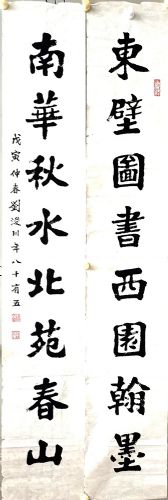 東壁圖書西園翰墨
南華秋水北苑春山
戊寅仲春劉浚川年八十有五